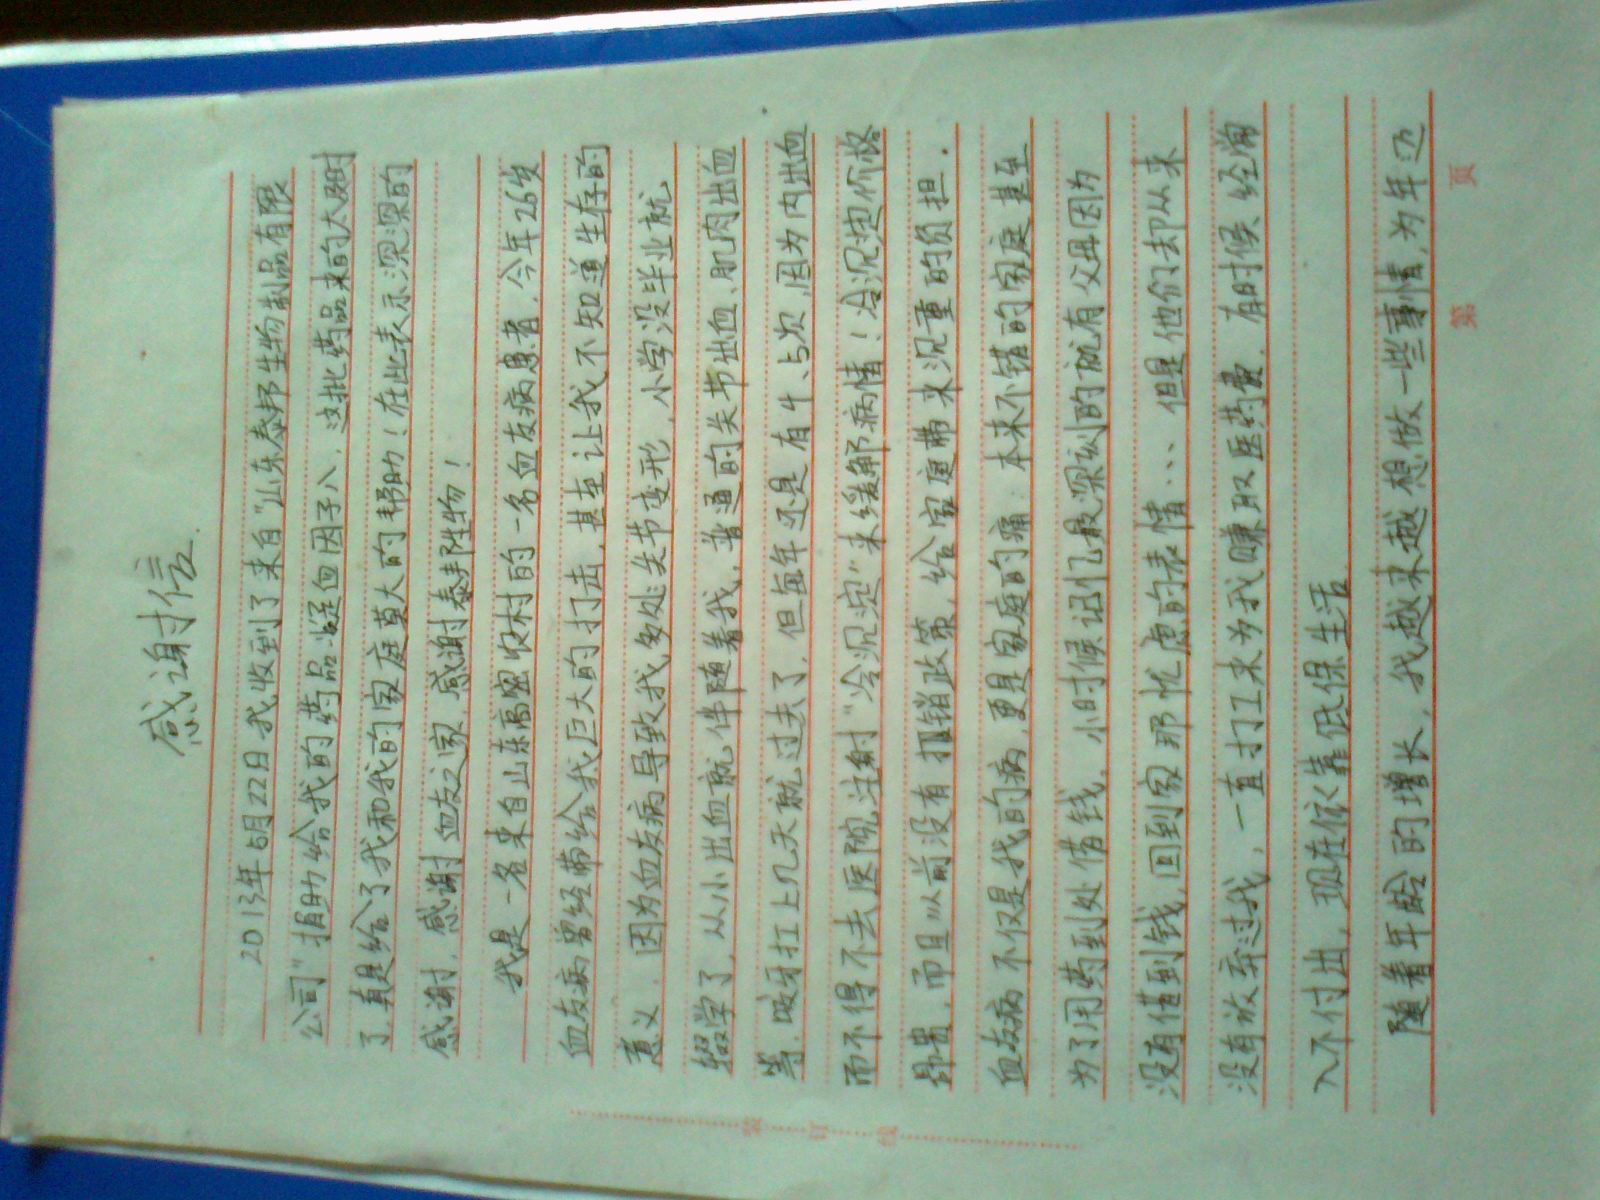 感谢信
2013年5月22日我收到了来自"山东泰邦生物制品有限
公司"捐助给我的药品凝血因子八，这批药品来的太及时
了，真是给了我和我的家庭莫大的帮助！在此表示深深的
感谢，感谢血友之家，感谢泰邦生物！
我是一名来自山东高密农村的一名血友病患者，今年26岁
血友病曾经带给我巨大的打击，甚至让我不知道生存的
意义，因为血友病导致我多处关节变形，小学没毕业就
辍学了，从小出血就伴随着我，普通的关节出血、肌肉出血
等，咬牙扛上几天就过去了，但每年还是有4、5次，因为内出血
而不得不去医院注射"冷沉淀"来缓解病情！冷沉淀价格
昂贵，而且从前没有报销政策，给家庭带来沉重的负担.
血友病不仅是我的病，更是家庭的痛：本来不错的家庭甚至
为了用药到处借钱，小时候记忆最深刻的就有父母因为
没有借到钱，回到家那忧虑的表情... 但是他们却从来
没有放弃过我，一直打工来为我赚取医药费，有时候经常
入不付出，现在依靠低保生活
随着年龄的增长，我越来越想做一些事情，为年迈
装 订 线
第 页